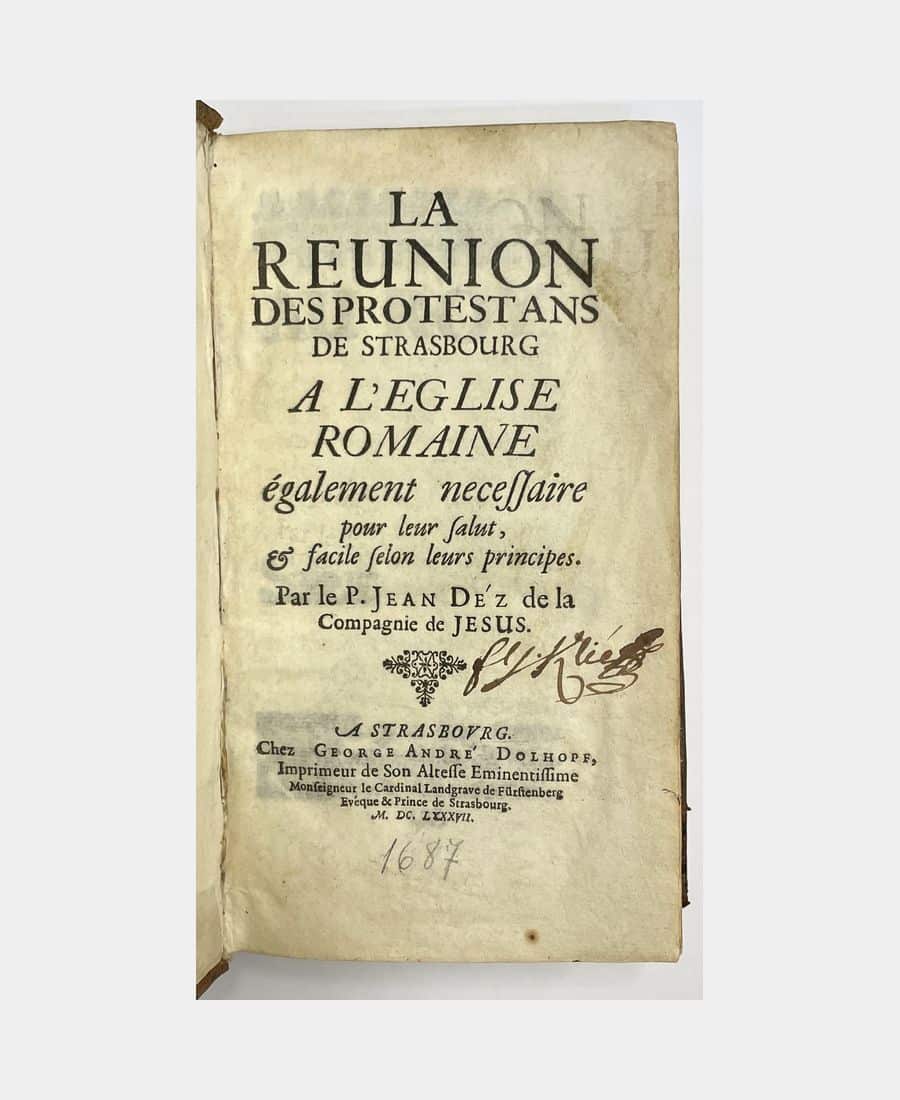 LA
REUNION
DES PROTESTANS
DE STRASBOURG
A L'EGLISE
ROMAINE
également neceſſaire
pour leur ſalut,
& facile ſelon leurs principes.
Par le P. JEAN DÉZ de la
Compagnie de JESUS.
A STRASBOVRG.
Chez GEORGE ANDRÉ DOLHOPF,
Imprimeur de Son Alteſſe Eminentiſſime
Monſeigneur le Cardinal Landgrave de Fürſtenberg
Evéque & Prince de Strasbourg.
M. DC. LXXXVII.
1687